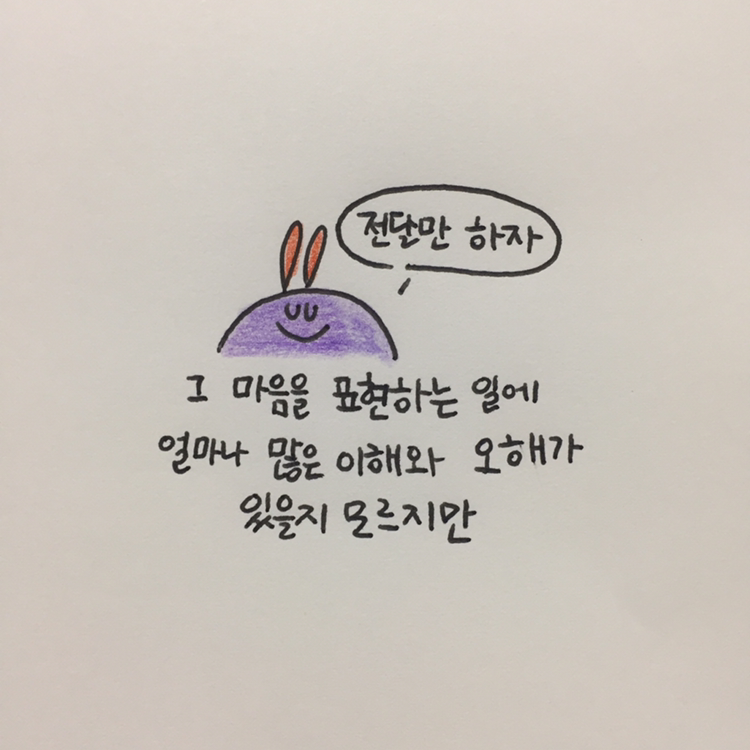 전달만 하자
그 마음을 표현하는 일에
얼마나 많은 이해와 오해가
있을지 모르지만